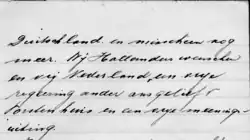 Duitschland en misschien nog
meer. Wij Hollanders wenschen
een vrij Nederland, een vrije
regeering onder ons geliefd
Vorstenhuis en een vrije meenings-
uiting.